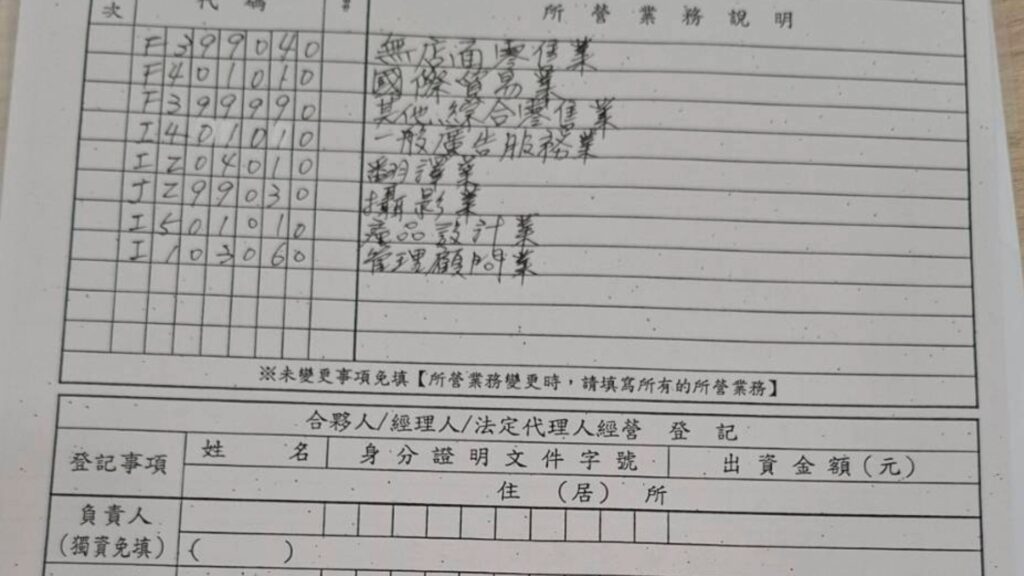 次 代碼 所營業務說明
F399040 無店面零售業
F401010 國際貿易業
F399990 其他綜合零售業
I401010 一般廣告服務業
IZ04010 翻譯業
JZ99030 攝影業
I501010 產品設計業
I103060 管理顧問業
※未變更事項免填【所營業務變更時，請填寫所有的所營業務】
合夥人/經理人/法定代理人經營 登記
登記事項 姓名 身分證明文件字號 出資金額(元)
住(居)所
負責人
(獨資免填) ( )